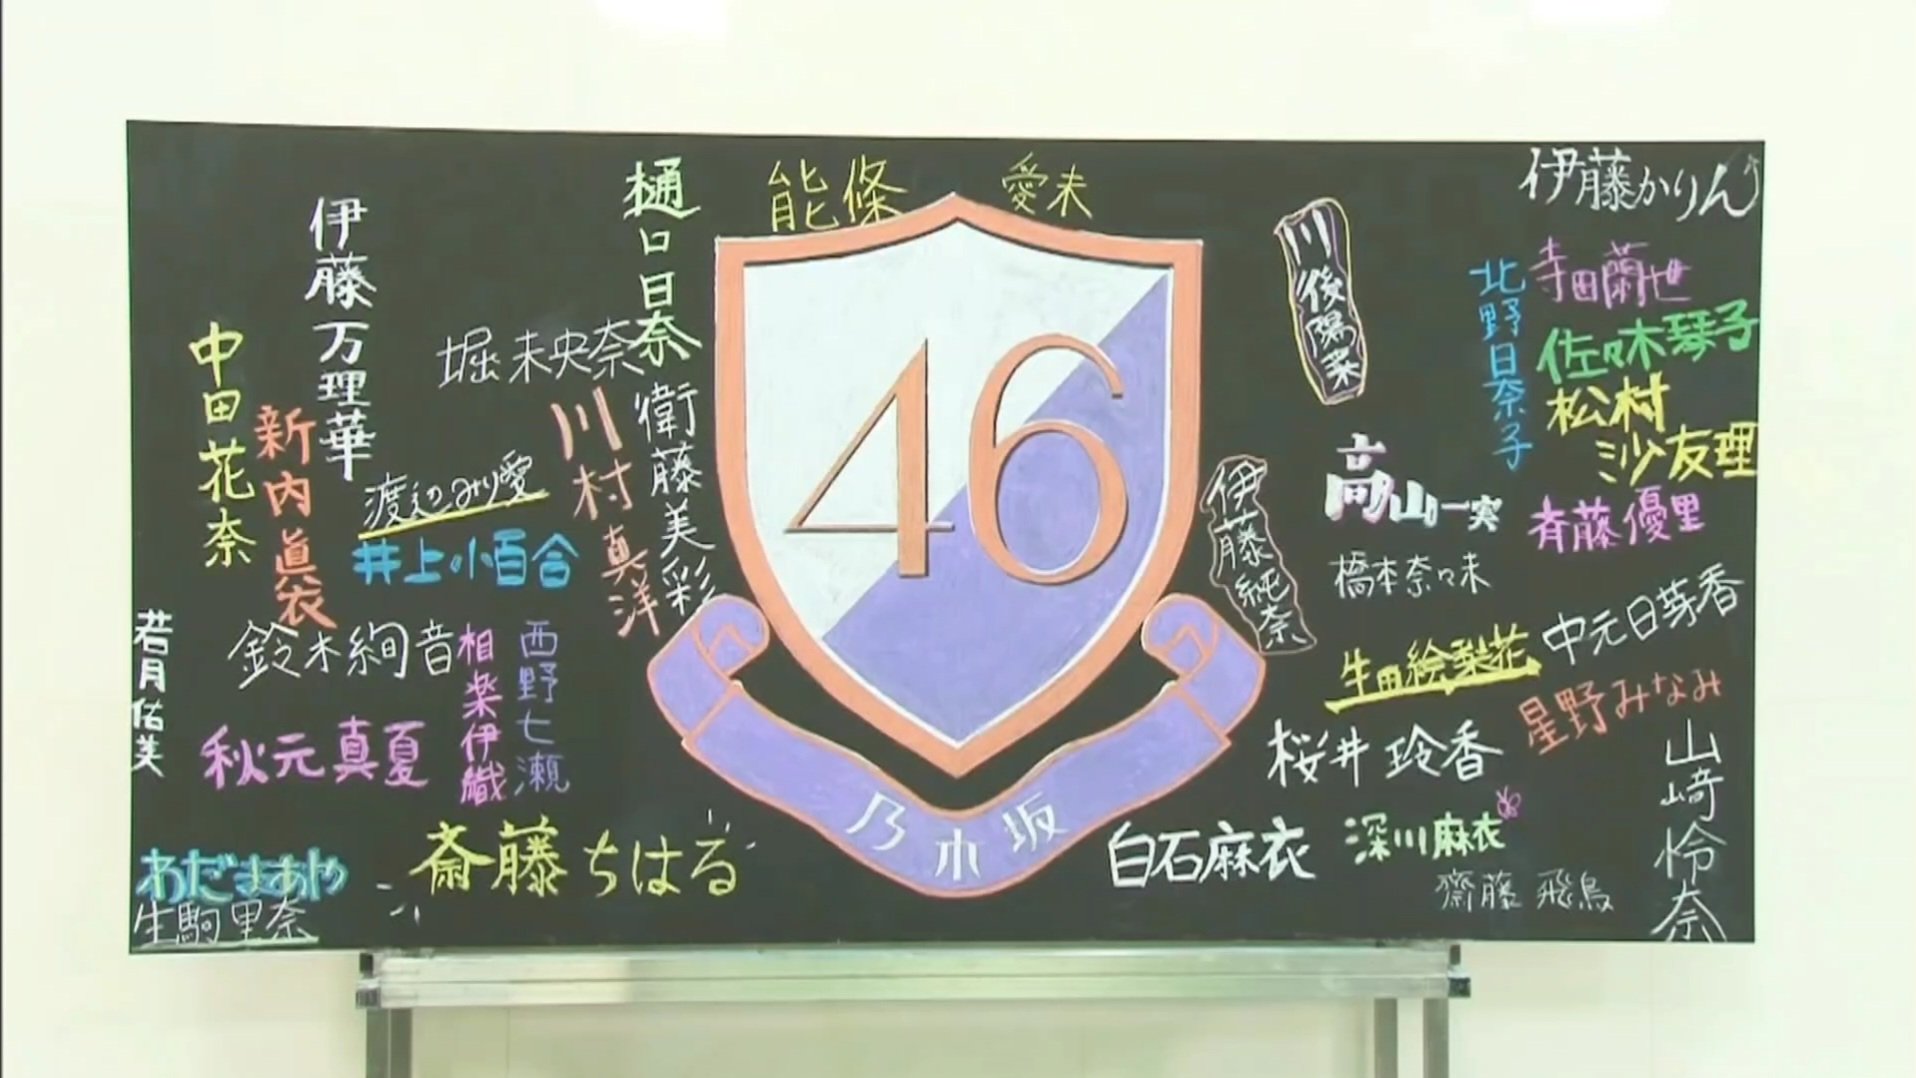 伊藤万理華
樋口日奈
能條 愛未
伊藤かりん
川後陽菜
寺田蘭世
北野日奈子
佐々木琴子
中田花奈
堀未央奈
新内眞衣
川村真洋
衛藤美彩
46
松村
沙友理
渡辺みり愛
伊藤純奈
高山一実
斉藤優里
井上小百合
橋本奈々未
中元日芽香
若月佑美
鈴木絢音
相楽伊織
西野七瀬
生田絵梨花
星野みなみ
秋元真夏
桜井玲香
山崎怜奈
乃木坂
わだまあや
斎藤ちはる
白石麻衣
深川麻衣
生駒里奈
齋藤飛鳥